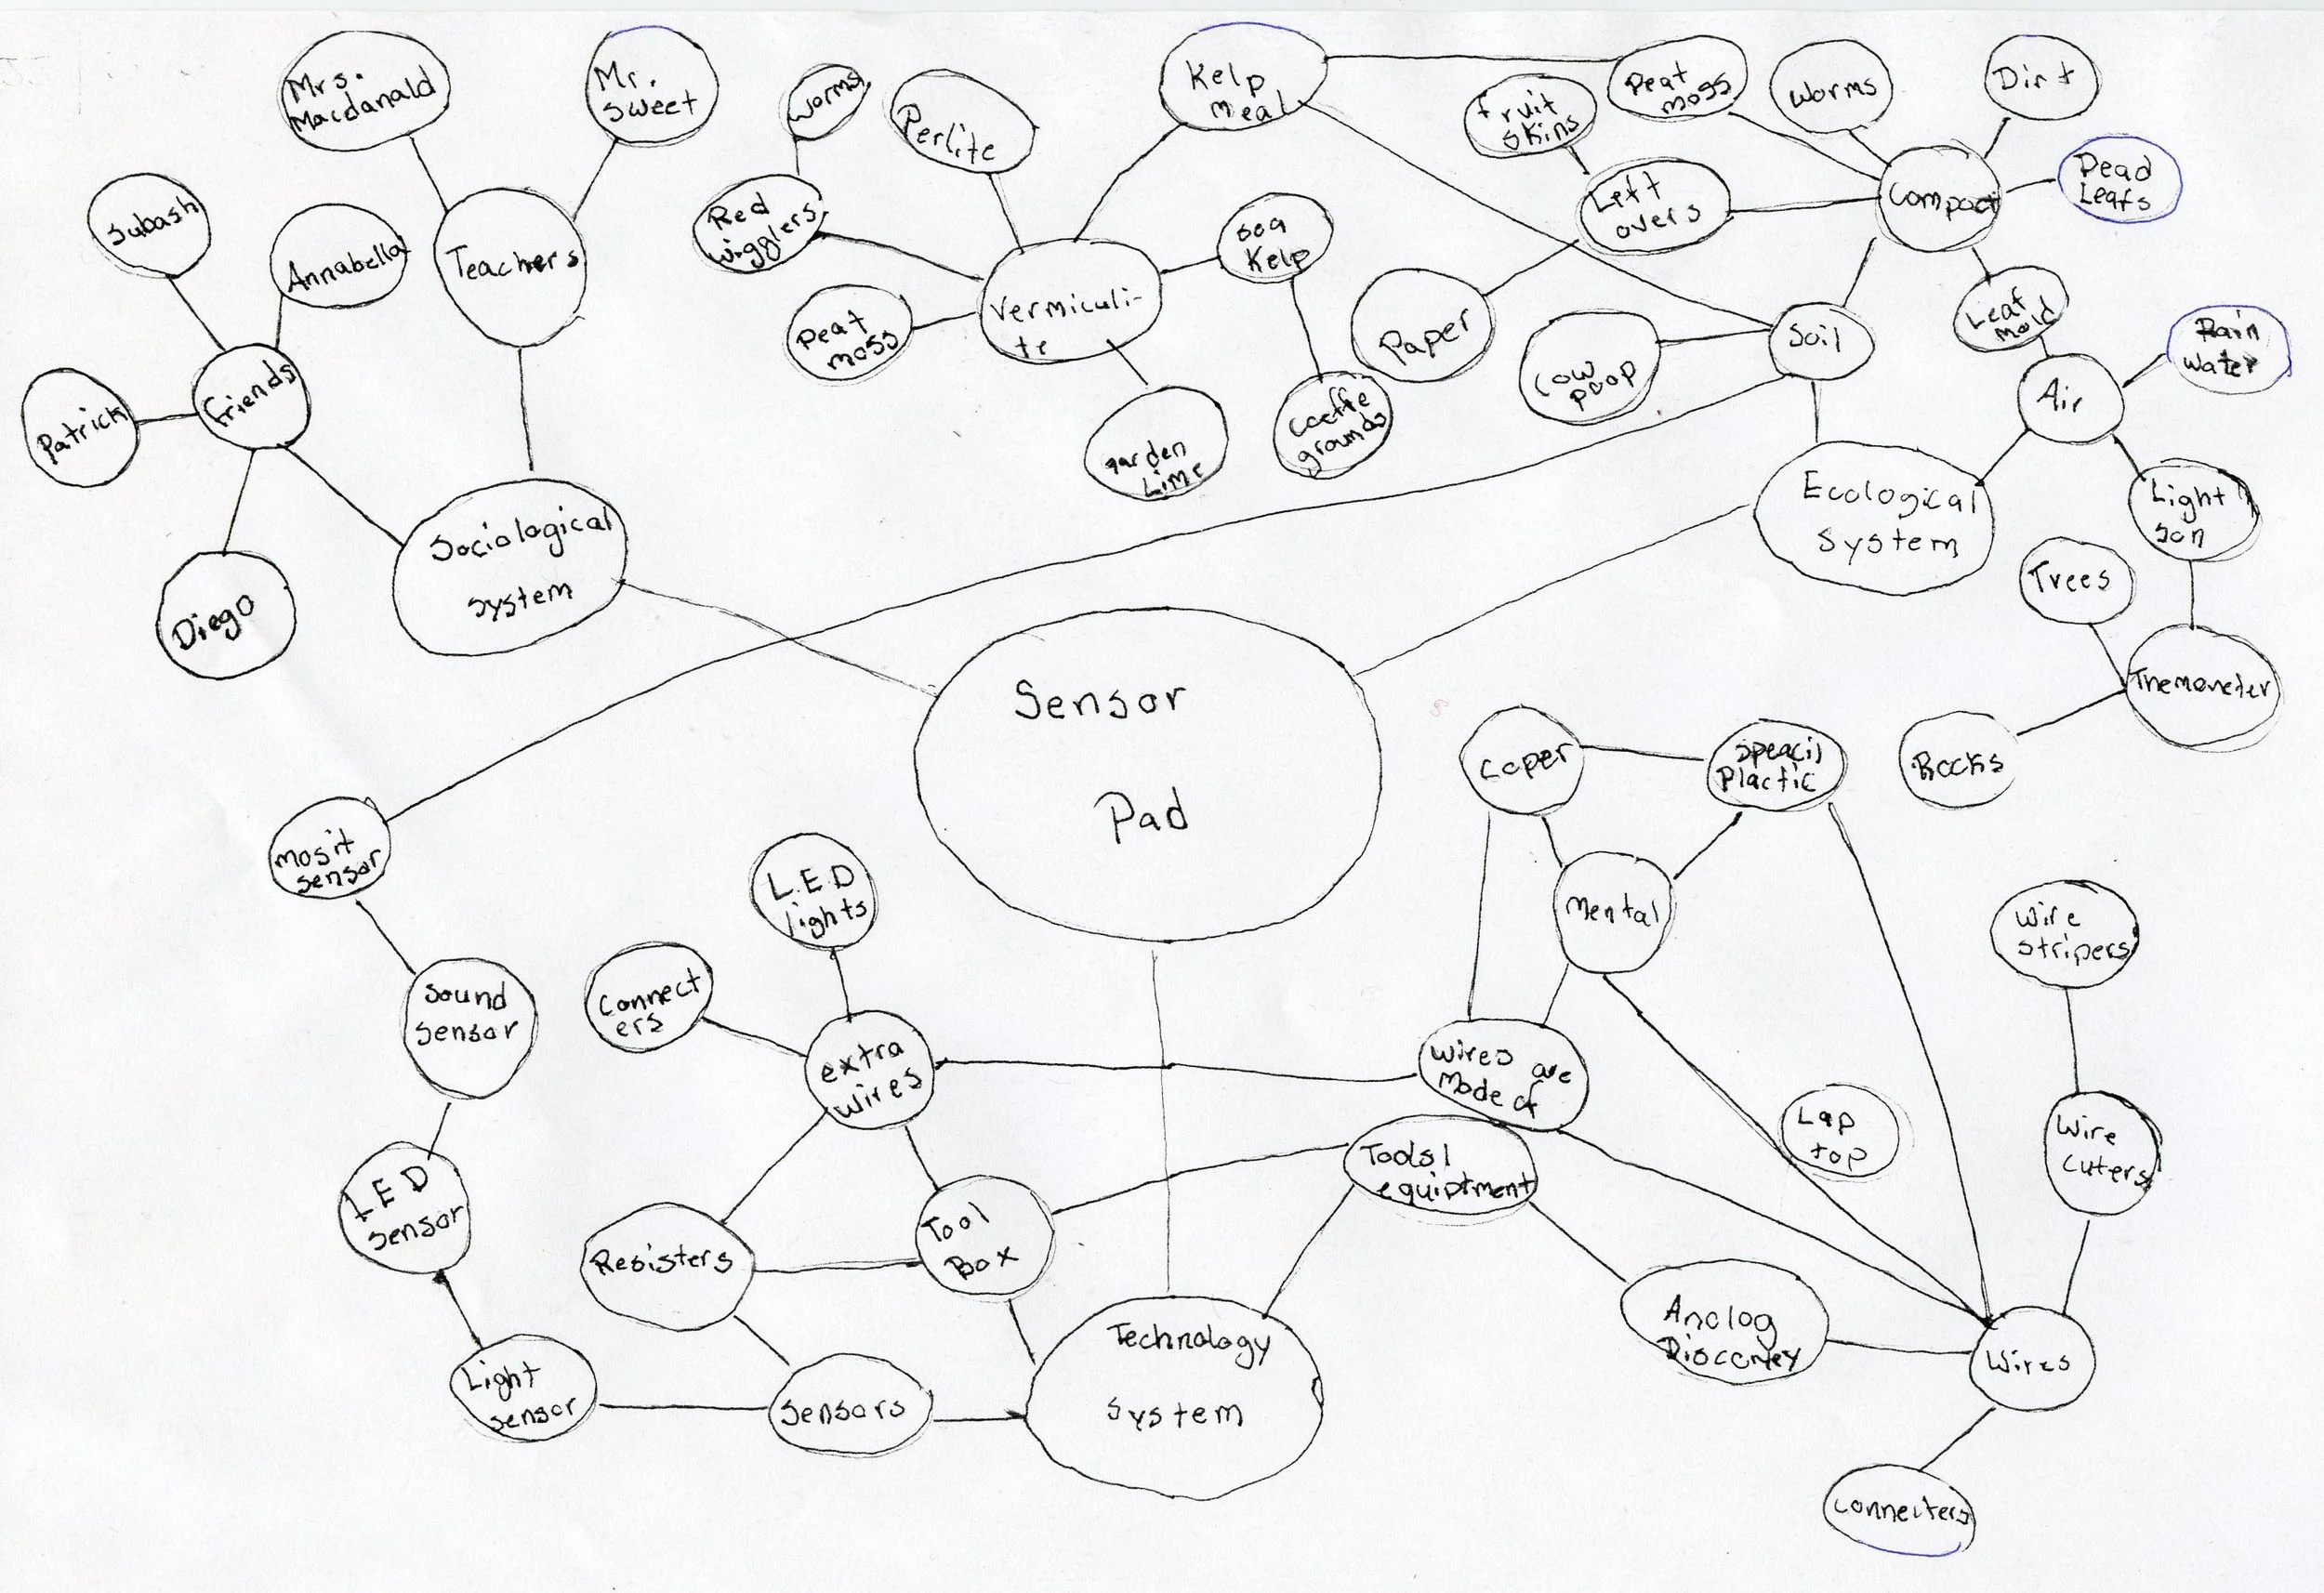 Mrs.
Macdanald
Mr.
Sweet
Worms
Perlite
Kelp
Meal
fruit
skins
Peat
moss
Worms
Dirt
Subash
Annabella
Teachers
Red
wigglers
Sea
Kelp
Left
overs
Compact
Dead
Leafs
Peat
moss
Vermiculi-
te
Paper
Cow
poop
Soil
Leaf
mold
Rain
water
Patrick
friends
garden
Lime
Coeffe
grounds
Air
Sociological
system
Ecological
System
Light
son
Trees
Diego
Themoneter
Sensor
Pad
Caper
Speacil
Plactic
Rocks
mosit
sensor
L.E.D
lights
Mental
Wire
stripers
Sound
Sensor
Connect
ers
extra
wires
wires are
Made of
Lap
top
Wire
cuters
LED
Sensor
Resisters
Tool
Box
Tools/
equiptment
Analog
Discovery
Wires
Light
sensor
Sensors
Technology
System
Connecters